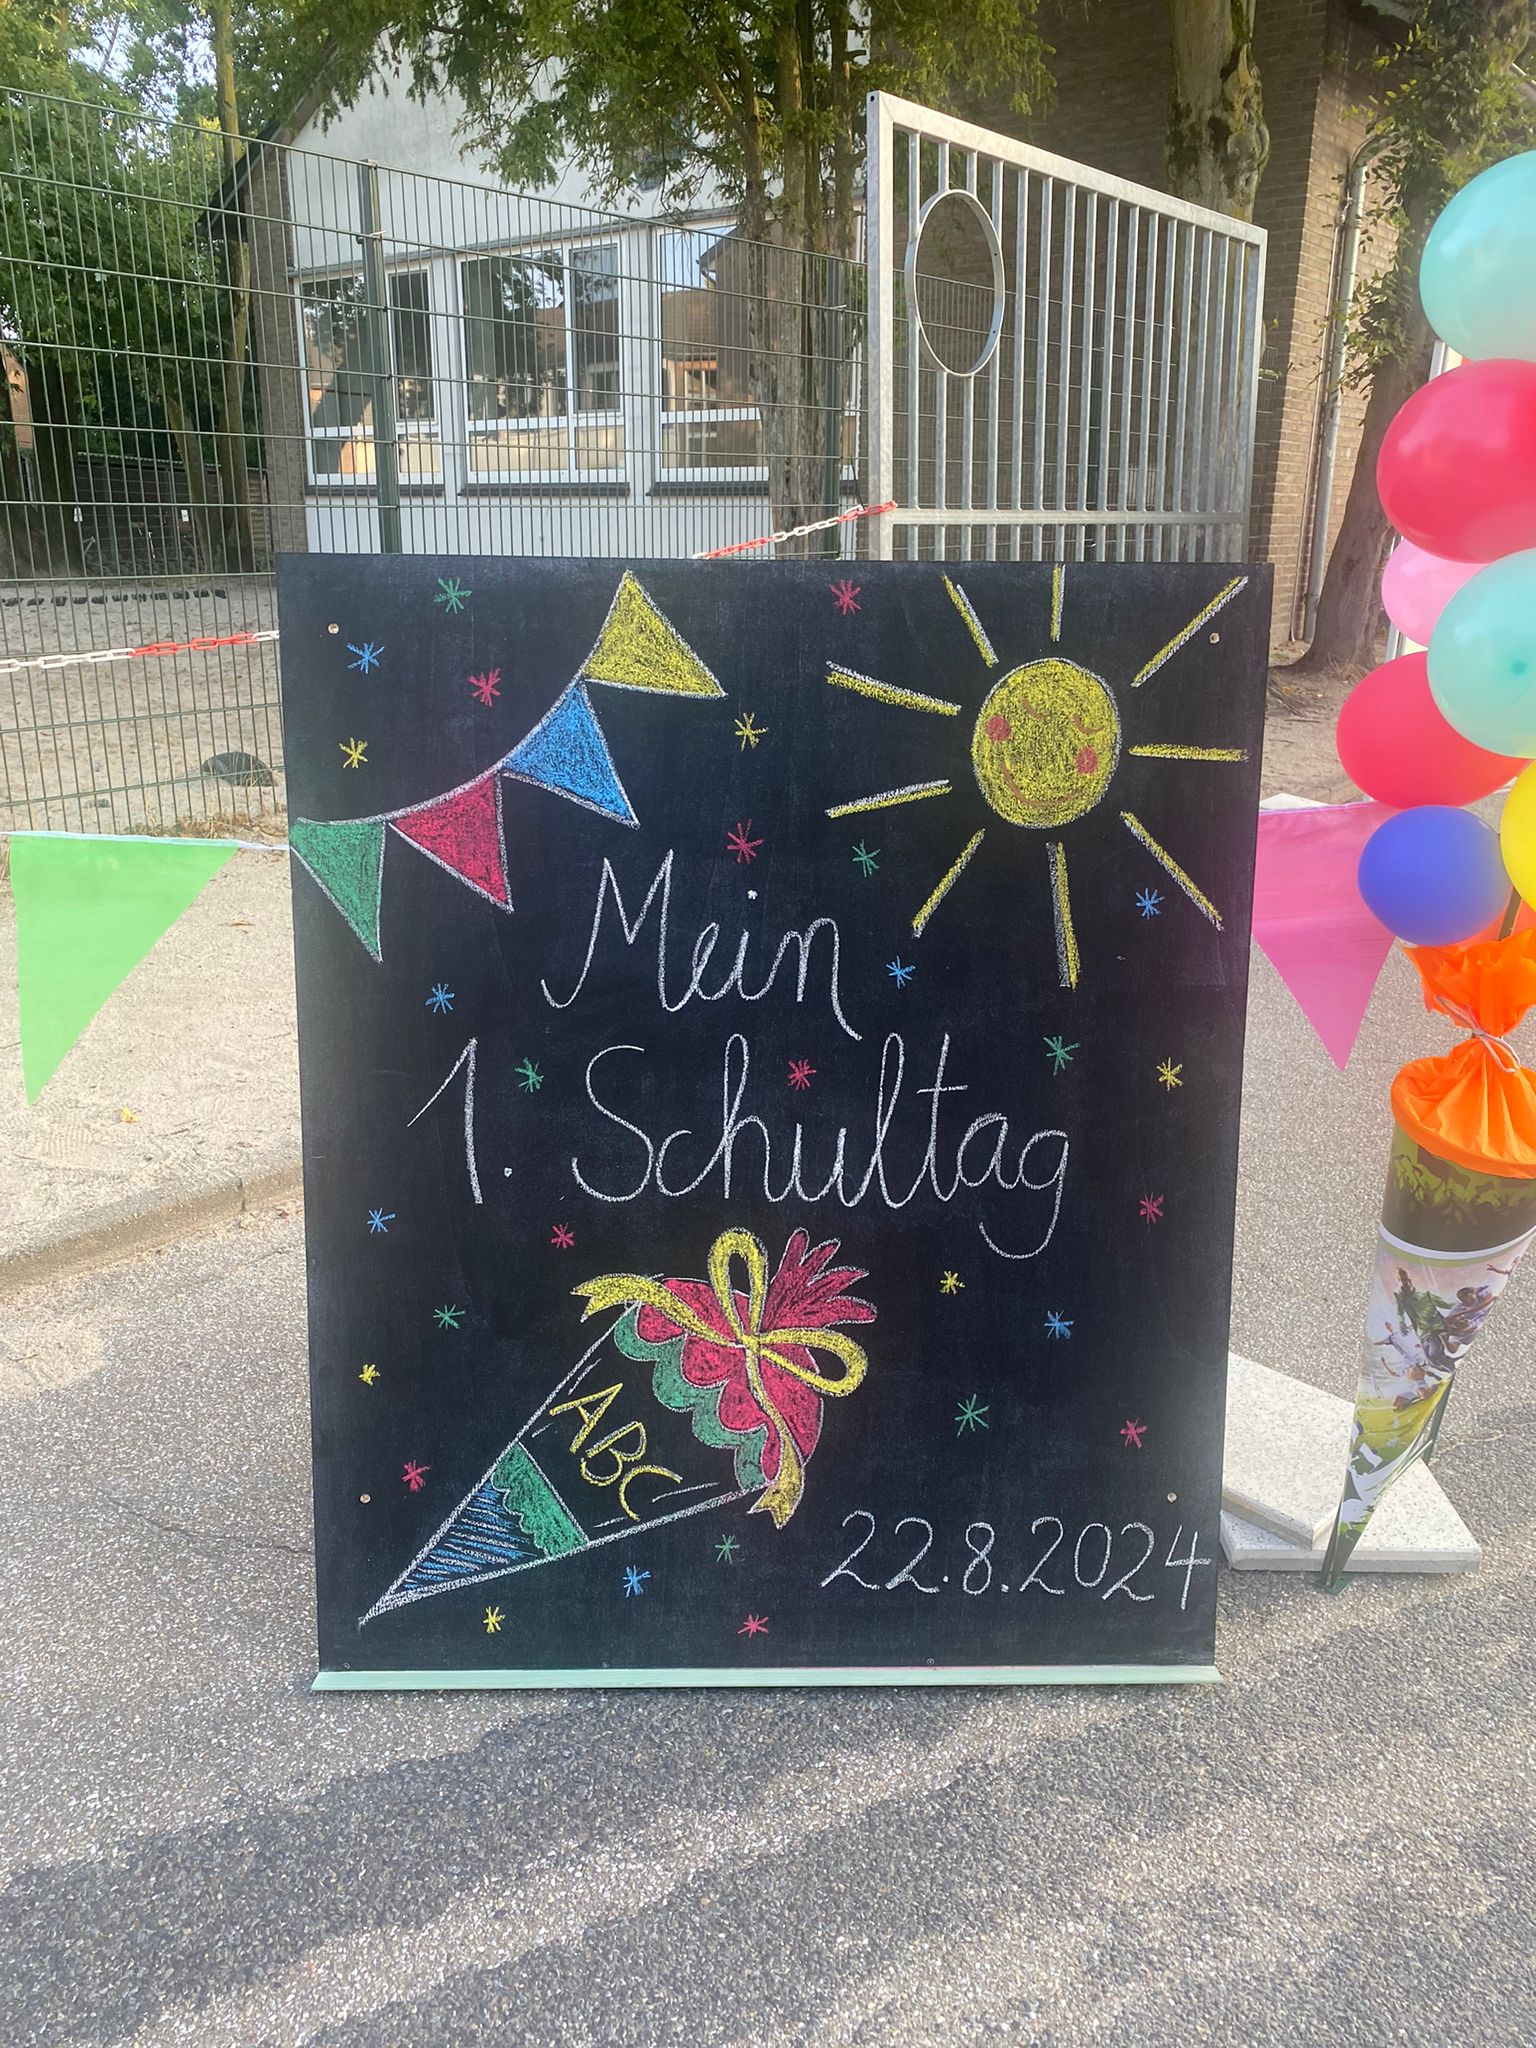 Mein
1. Schultag
ABC
22.8.2024